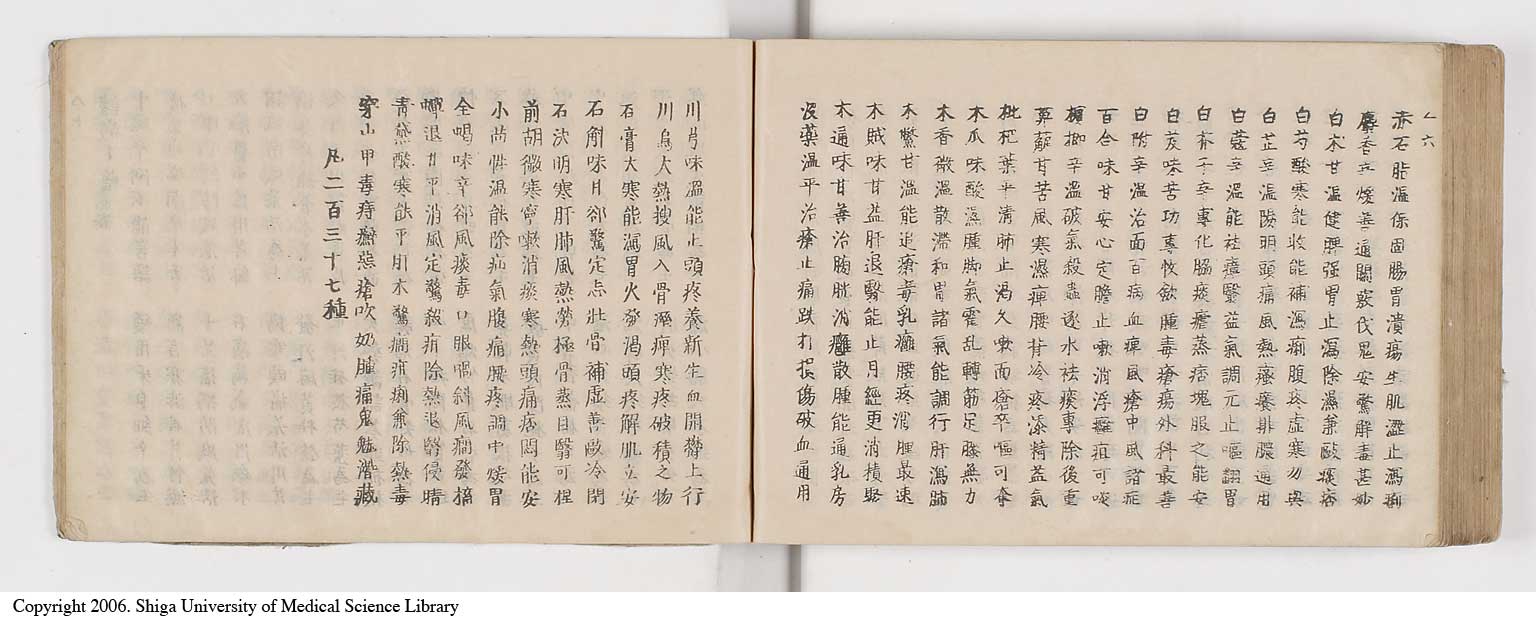 六
赤石脂溫保固腸胃潰瘍生肌澀止瀉痢
麝香辛煖善通關竅伐鬼安驚解毒甚妙
白朮甘溫健脾强胃止瀉除濕兼敺痰痞
白芍酸寒能收能補瀉痢腹疼虛寒勿與
白芷辛溫陽明頭痛風熱瘙痒排膿通用
白蔻辛溫能祛瘴翳益氣調元止嘔翻胃
白芥子辛專化脇痰瘧蒸痞塊服之能安
白芨味苦功專收歛腫毒瘡瘍外科最善
白附辛溫治面百病血痺風瘡中風諸症
百合味甘安心定膽止嗽消浮癰疽可啖
檳榔辛溫破氣殺蟲逐水祛痰專除後重
萆薢甘苦風寒濕痺腰背冷疼添精益氣
枇杷葉辛清肺止渴久嗽而瘡卒嘔可奪
木瓜味酸濕腫脚氣霍乱轉筋足膝無力
木香微溫散滯和胃諸氣能調行肝瀉肺
木鱉甘溫能追瘡毒乳癰腰疼消腫最速
木賊味甘益肝退翳能止月經更消積聚
木通味甘善治膀胱消癰散腫能通乳房
沒藥溫平治瘡止痛跌打損傷破血通用
川芎味溫能止頭疼養新生血開欝上行
川烏大熱搜風入骨濕痺寒疼破積之物
石膏大寒能瀉胃火發渴頭疼解肌立安
石斛味甘卻驚定志壯骨補虛善敺冷閉
石決明寒肝肺風熱勞極骨蒸目翳可捏
前胡微寒寧嗽消痰寒熱頭痛痞悶能安
小茴性溫能除疝氣腹痛腰疼調中煖胃
全蝎味辛卻風痰毒口眼喎斜風癇發搐
蟬退甘平消風定驚殺疳除熱退翳侵睛
青黛醎寒能平肝木驚癇疳痢兼除熱毒
穿山甲毒痔癬惡瘡吹奶腫痛鬼魅潛藏
凡二百三十七種
Copyright 2006. Shiga University of Medical Science Library